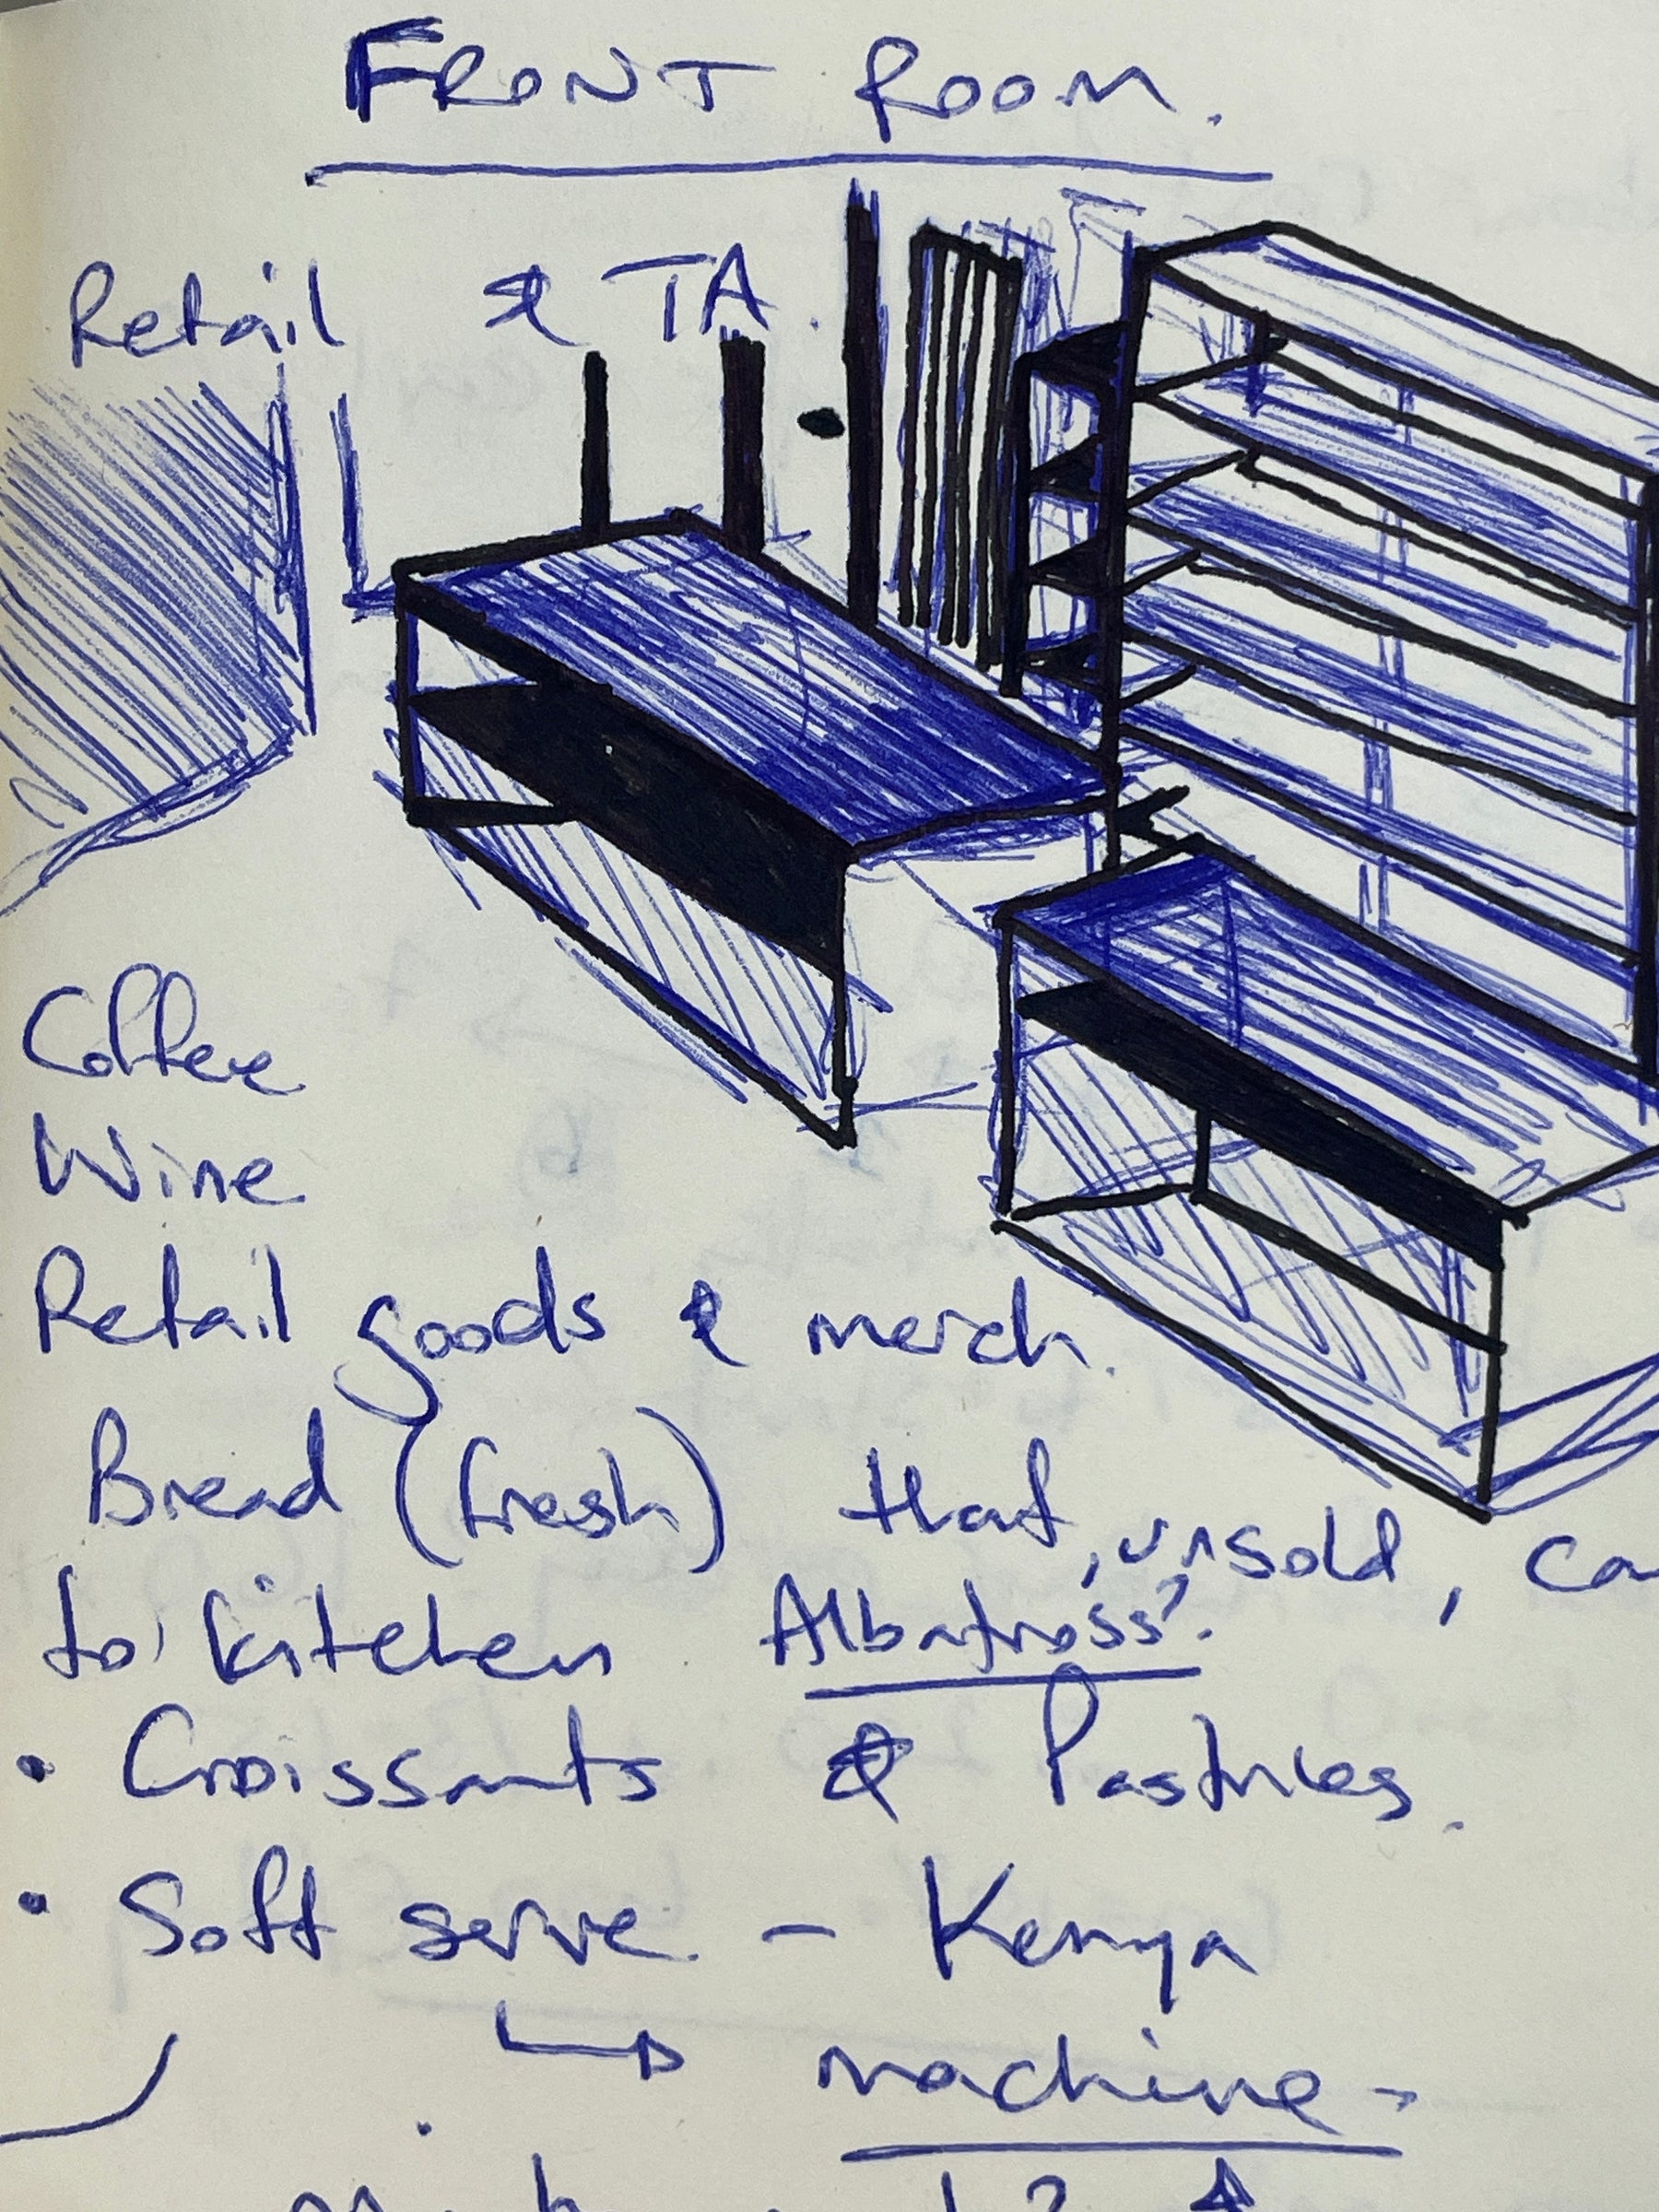 FRONT ROOM.
Retail & TA.
Coffee
Wine
Retail goods & merch.
Bread (fresh) that, unsold, ca
to kitchen Albatross?
• Croissants & Pastries.
• Soft serve - Kenya
↳ machine -